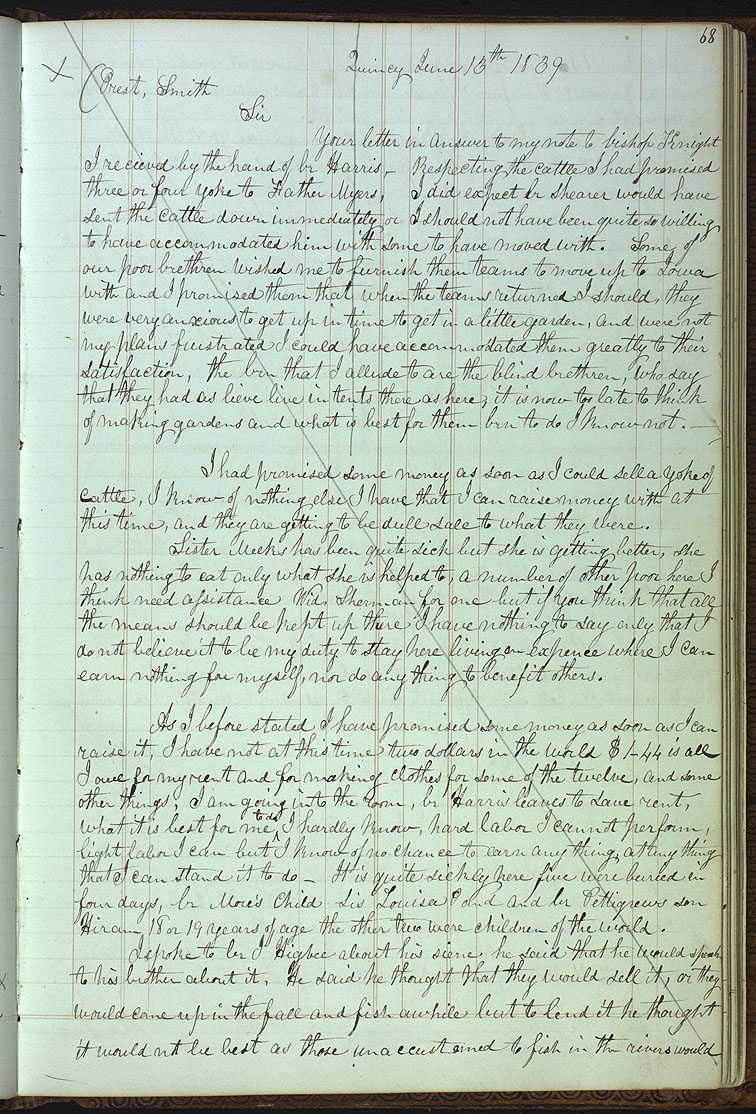 68
Quincy June 13th 1839
Prest, Smith
Sir
Your letter in answer to my note to bishop Knight
I recieved by the hand of br Harris,- Respecting the cattle I had promised
three or four yoke to Father Myers, I did expect br Shearer would have
sent the cattle down immediately or I should not have been quite so willing
to have accommodated him with some to have moved with. Some of
our poor brethren wished me to furnish them teams to move up to Iowa
with and I promised them that when the teams returned I should, they
were very anxious to get up in time to get in a little garden, and were not
my plans frustrated I could have accommodated them greatly to their
satisfaction, the brn that I allude to are the blind brethren, who say
that they had as lieve live in tents there as here, it is now too late to think
of making gardens and what is best for them brn to do I know not. —
I had promised some money as soon as I could sell a yoke of
cattle, I know of nothing else I have that I can raise money with at
this time, and they are getting to be dull sale to what they were.
Sister Meeks has been quite sick but she is getting better, she
has nothing to eat only what she is helped to, a number of other poor here I
think need assistance Wid. Sherman for one but if you think that all
the means should be kept up there I have nothing to say only that I
do not believe it to be my duty to stay here living on expence where I can
earn nothing for myself, nor do any thing to benefit others.
As I before stated I have promised some money as soon as I can
raise it, I have not at this time two dollars in the world $1-44 is all
I owe for my rent and for making clothes for some of the twelve, and some
other things, I am going into the room, br Harris leaves to save rent,
what it is best for me to do I hardly know, hard labor I cannot perform,
light labor I can but I know of no chance to earn any thing, at any thing
that I can stand it to do - It is quite sickly here five were buried in
four days, br Moie's Child Sis Louisa Pond and br Pettigrews son
Hiram 18 or 19 years of age the other two were children of the world.
I spoke to br I Higbee about his siene he said that he would speak
to his brother about it. He said he thought that they would sell it, or they
would come up in the fall and fish awhile but to lend it he thought
it would not be best as those unaccustomed to fish in the rivers would